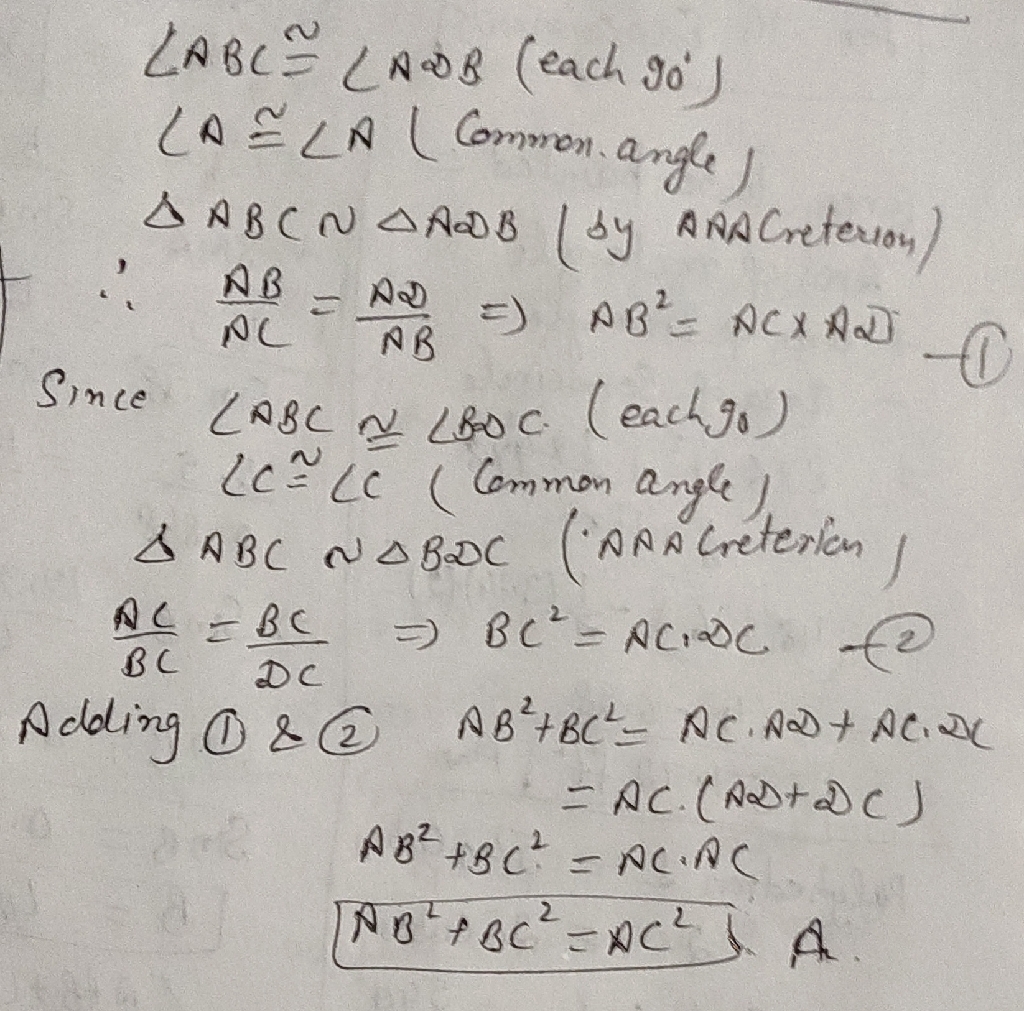 ∠ABC ≅ ∠ADB (each 90°)
∠A ≅ ∠A (Common angle)
△ABC ~ △ADB (by AAA Creterion)
∴ AB/AC = AD/AB ⇒ AB² = AC × AD —①
Since ∠ABC ≅ ∠BDC (each 90)
∠C ≅ ∠C (Common angle)
△ABC ~ △BDC (AAA Creterion)
AC/BC = BC/DC ⇒ BC² = AC.DC —②
Adding ① & ② AB² + BC² = AC.AD + AC.DC
= AC.(AD + DC)
AB² + BC² = AC.AC
AB² + BC² = AC²